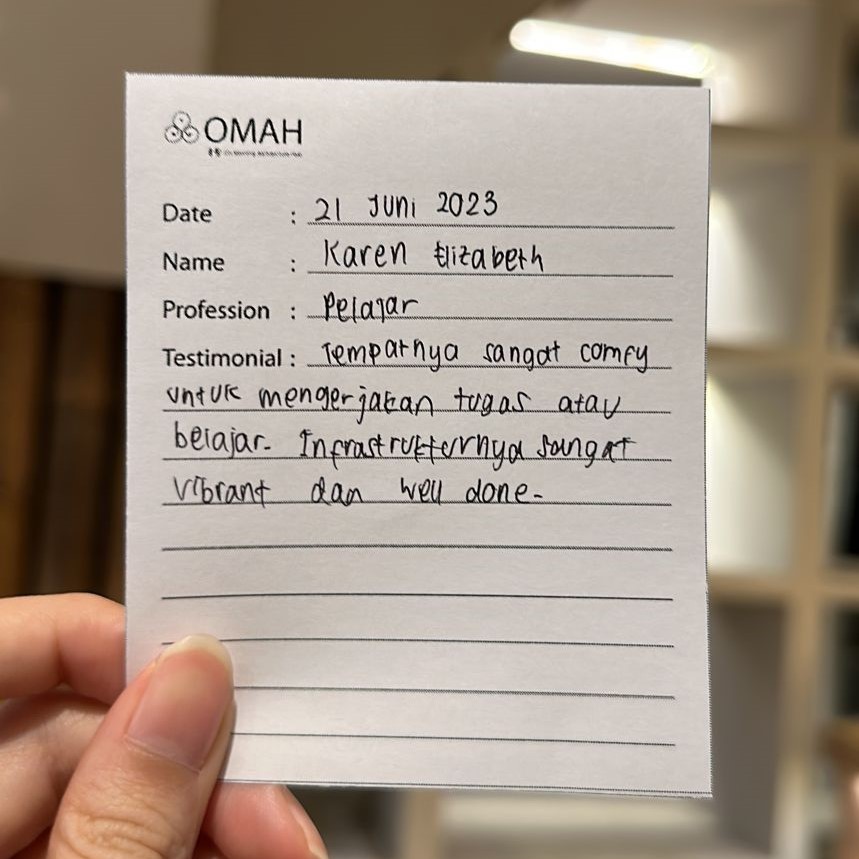 OMAH
Date : 21 Juni 2023
Name : Karen Elizabeth
Profession : Pelajar
Testimonial : Tempatnya sangat comfy
untuk mengerjakan tugas atau
belajar. Infrastrukturnya sangat
vibrant dan well done.